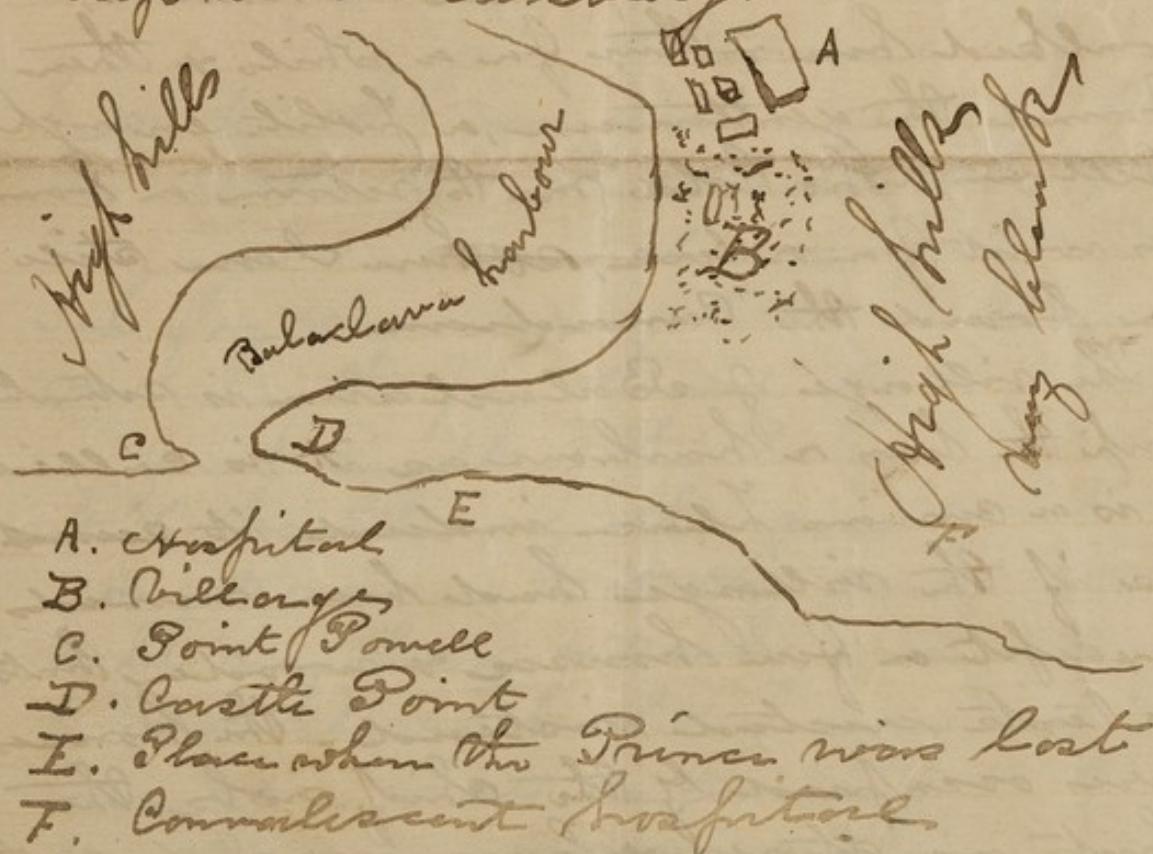 High hills
Balaclava harbour
A
B
High hills
very bleak
C
D
E
F
A. Hospital
B. Village
C. Point Powell
D. Castle Point
E. Place where the Prince was lost
F. Convalescent hospital